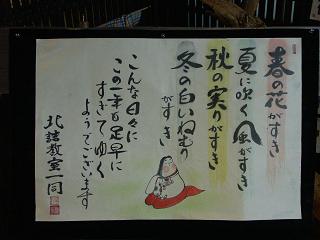 春の花がすき
夏に吹く風がすき
秋の実りがすき
冬の白いねむり
がすき
こんな日々に
この一年も足早に
すぎてゆく
ようでございます
北詰教室一同